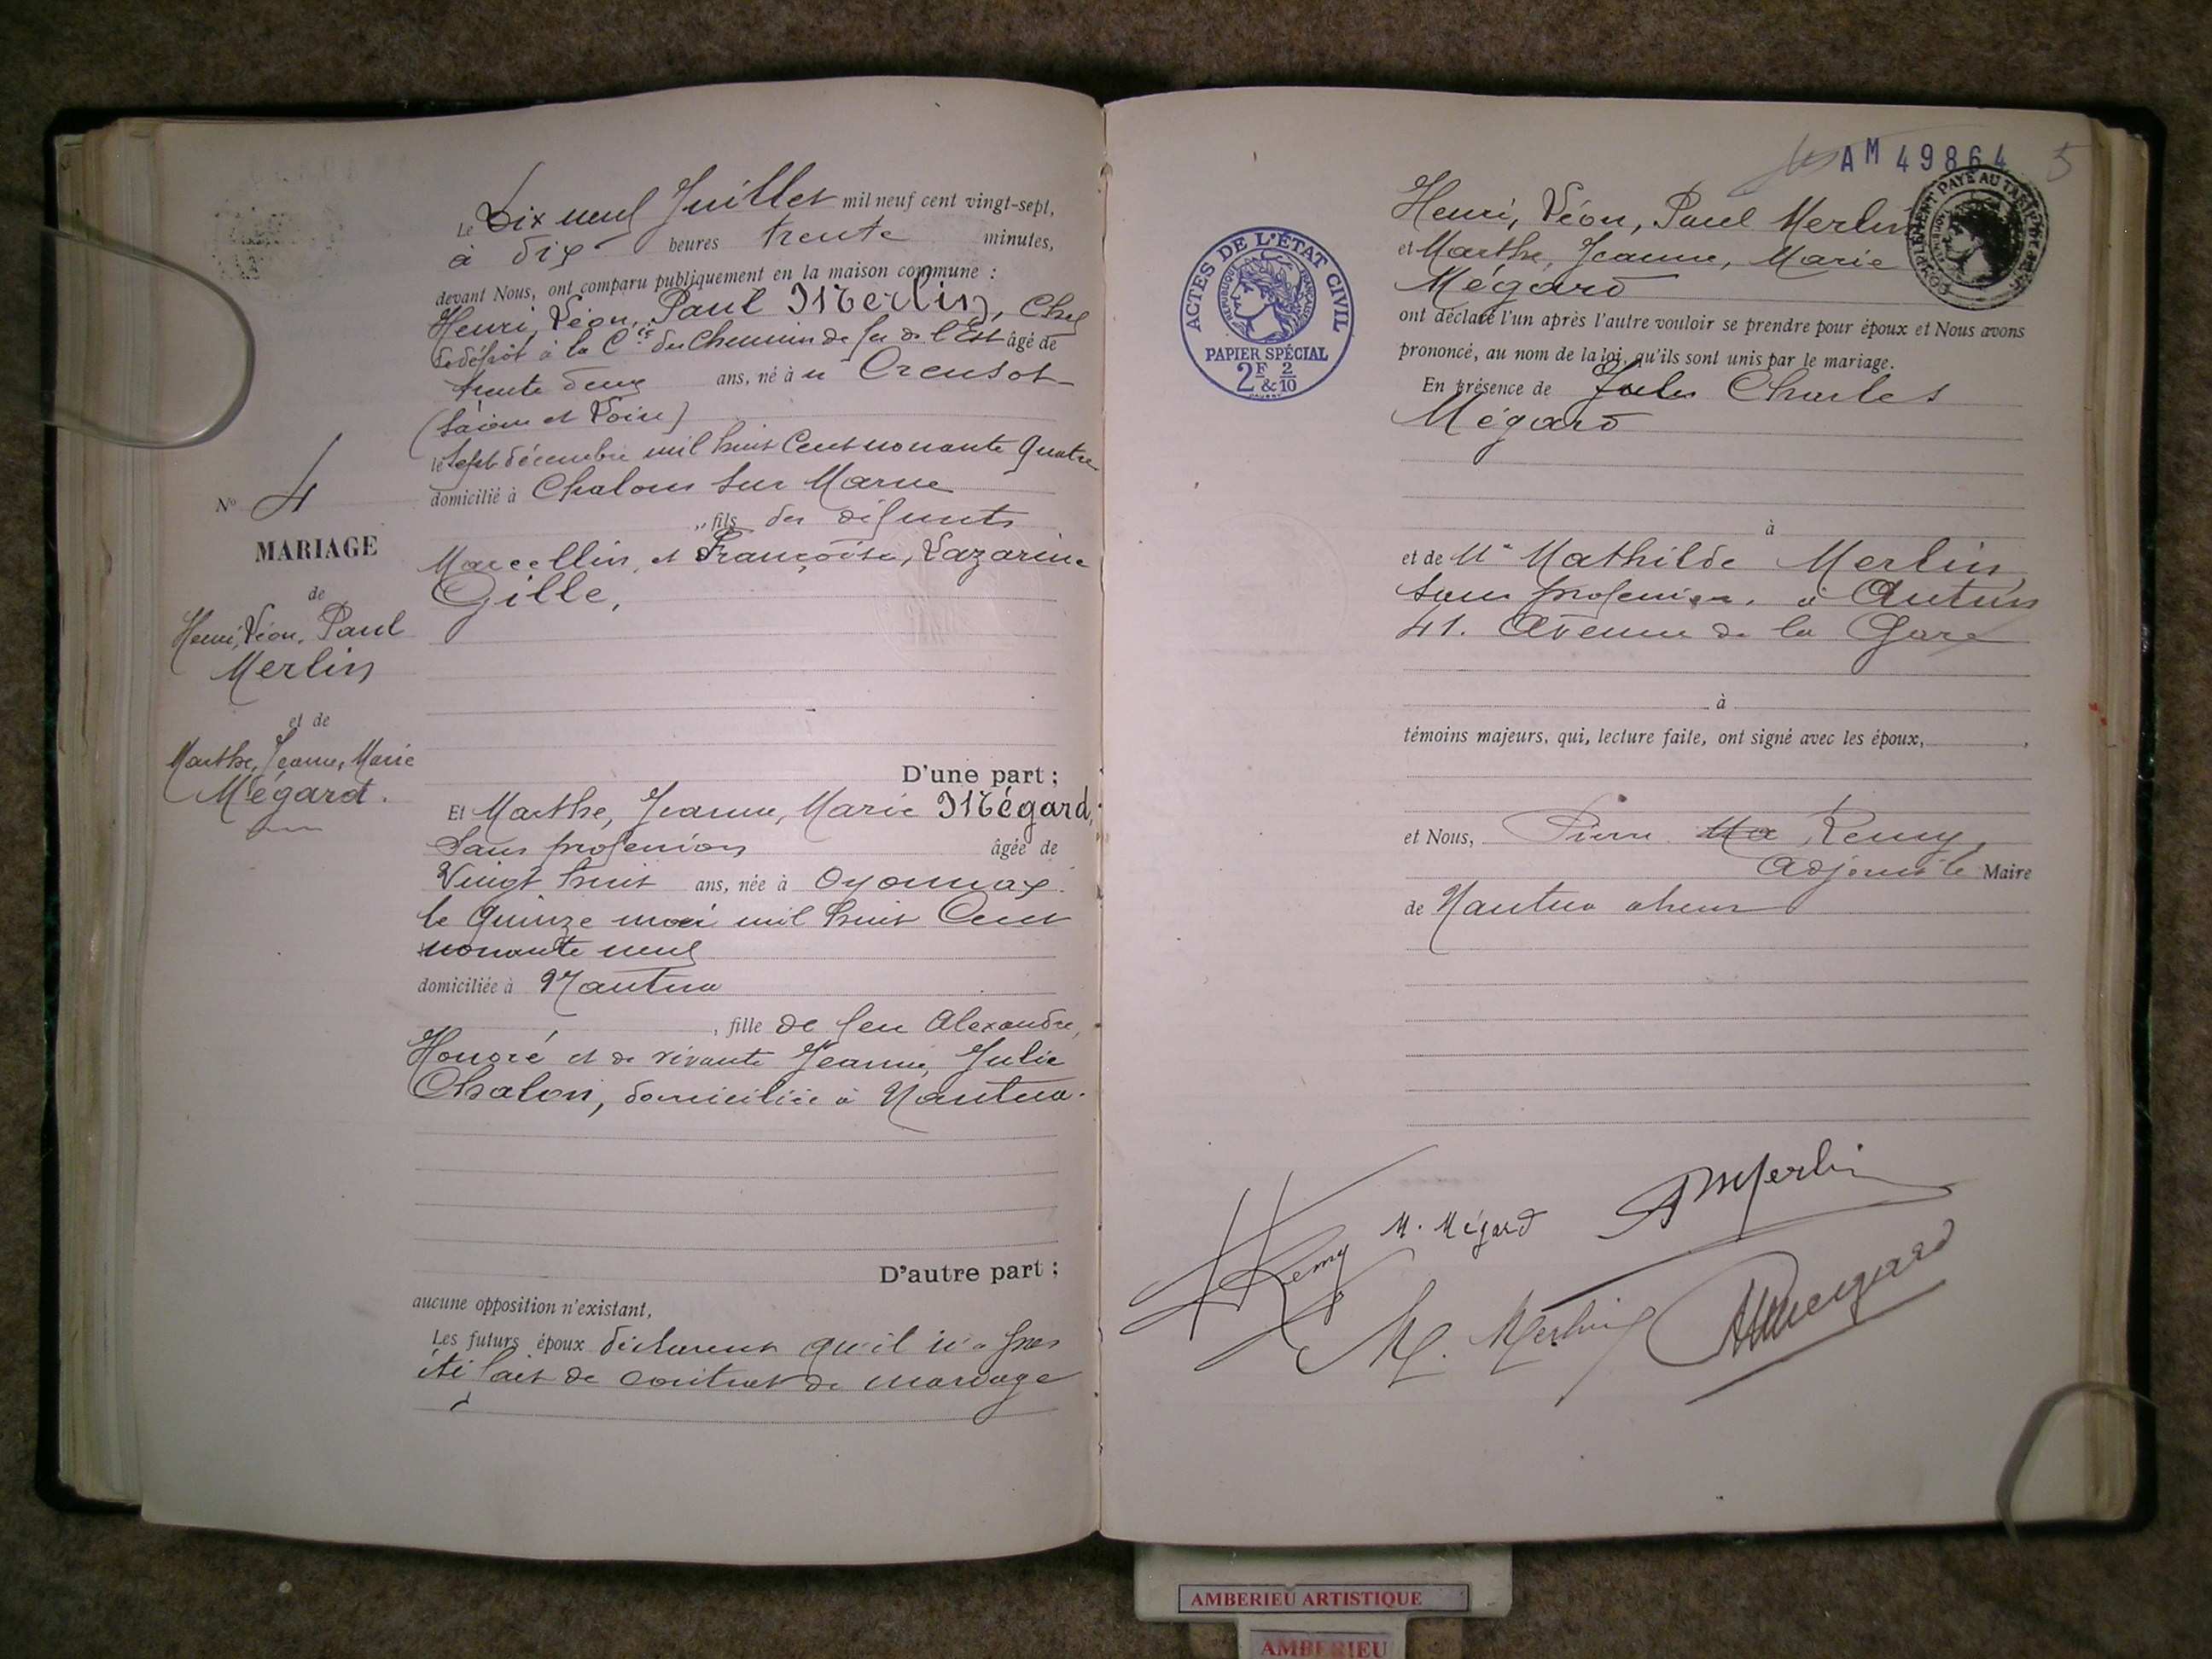 Le Dix neuf Juillet mil neuf cent vingt-sept,
à dix heures trente minutes,
devant Nous, ont comparu publiquement en la maison commune :
Henri, Léon, Paul Merlin, Chef
de dépôt à la Cie des Chemin de fer de l'Est âgé de
trente deux ans, né à u Creusot
(Saône et Loire)
le sept décembre mil huit Cent nonante quatre
domicilié à Chalons sur Marne
, fils des défunts
Marcellin, et Françoise, Lazarine
Gille,
D'une part ;
No 4
MARIAGE
de
Henri, Léon, Paul
Merlin
et de
Marthe, Jeanne, Marie
Mégard.
Et Marthe, Jeanne, Marie Mégard,
Sans profession âgée de
Vingt huit ans, née à Oyonnax.
le quinze mai mil huit Cent
nonante neuf
domiciliée à Nantua
, fille de feu Alexandre,
Honoré et de vivante Jeanne, Julie
Chalon, domiciliée à Nantua.
D'autre part ;
aucune opposition n'existant,
Les futurs époux déclarent qu'il n'a pas
été fait de contrat de mariage
AM 49864
5
COMPLÉMENT PAYÉ AU TARIF
ACTES DE L'ÉTAT CIVIL
RÉPUBLIQUE FRANÇAISE
PAPIER SPÉCIAL
2F & 2/10
Henri, Léon, Paul Merlin
et Marthe, Jeanne, Marie
Mégard
ont déclaré l'un après l'autre vouloir se prendre pour époux et Nous avons
prononcé, au nom de la loi, qu'ils sont unis par le mariage.
En présence de Jules Charles
Mégard
à
et de Mathilde Merlin,
sans profession, à Autun
41. Avenue de la Gare
à
témoins majeurs, qui, lecture faite, ont signé avec les époux,
et Nous, Pierre Ma Remy,
Adjoint le Maire
de Nantua
Remy
M. Mégard
Merlin
M. Merlin
Megard
AMBERIEU ARTISTIQUE
AMBERIEU